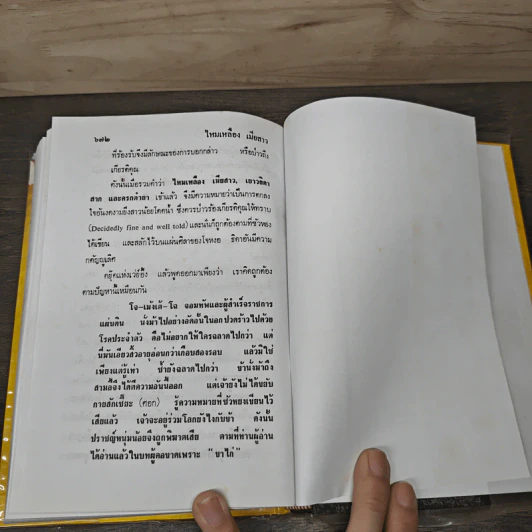 ๖๗๒ ไหมเหลือง เมียสาว
ที่ร้องรับจึงมีลักษณะของการบอกกล่าว หรือป่าวถึง
เกียรติคุณ
ดังนั้นเมื่อรวมคำว่า ไหมเหลือง เมียสาว, เยาวธิดา
สาก และครกตำยา เข้าแล้ว จึงมีความหมายว่าเป็นการตกลง
ใจอันงดงามยิ่งสาวน้อยโดดน้ำ ซึ่งควรป่าวร้องเกียรติคุณให้ทราบ
(Decidedly fine and well told) และนั่นก็ถูกต้องตามที่ชัวหยง
ได้เขียน และสลักไว้บนแผ่นศิลาของโจหงอ ธิดาอันมีความ
กตัญญูเลิศ
ครุ้คแห่งเว่ย์อึ้ง แล้วพูดออกมาเพียงว่า เราคิดถูกต้อง
ตามปัญหานี้เหมือนกัน
โจ–เม้งเต้–โฉ จอมทัพและผู้สำเร็จราชการ
แผ่นดิน นั่งม้าไปอย่างอัดอั้นในอกปวดร้าวไปด้วย
โรคประจำตัว คือไม่อยากให้ใครฉลาดไปกว่า แต่
นี่มันเอียวสิ้วอายุอ่อนกว่าเกือบสองรอบ แล้วมิใช่
เพียงแต่รู้เท่า ซ้ำยังฉลาดไปกว่า ข้านั่งม้าถึง
สามลี้จึงได้ตีความอันนี้ออก แต่เจ้ายังไม่ได้ขยับ
กายสักเชียะ (ศอก) รู้ความหมายที่ชัวหยงเขียนไว้
เสียแล้ว เจ้าจะอยู่ร่วมโลกยังไงกับข้า ดังนั้น
ปราชญ์หนุ่มน้อยจึงถูกพิฆาตเสีย ตามที่ท่านผู้อ่าน
ได้อ่านแล้วในบทผู้คอขาดเพราะ “ขาไก่”